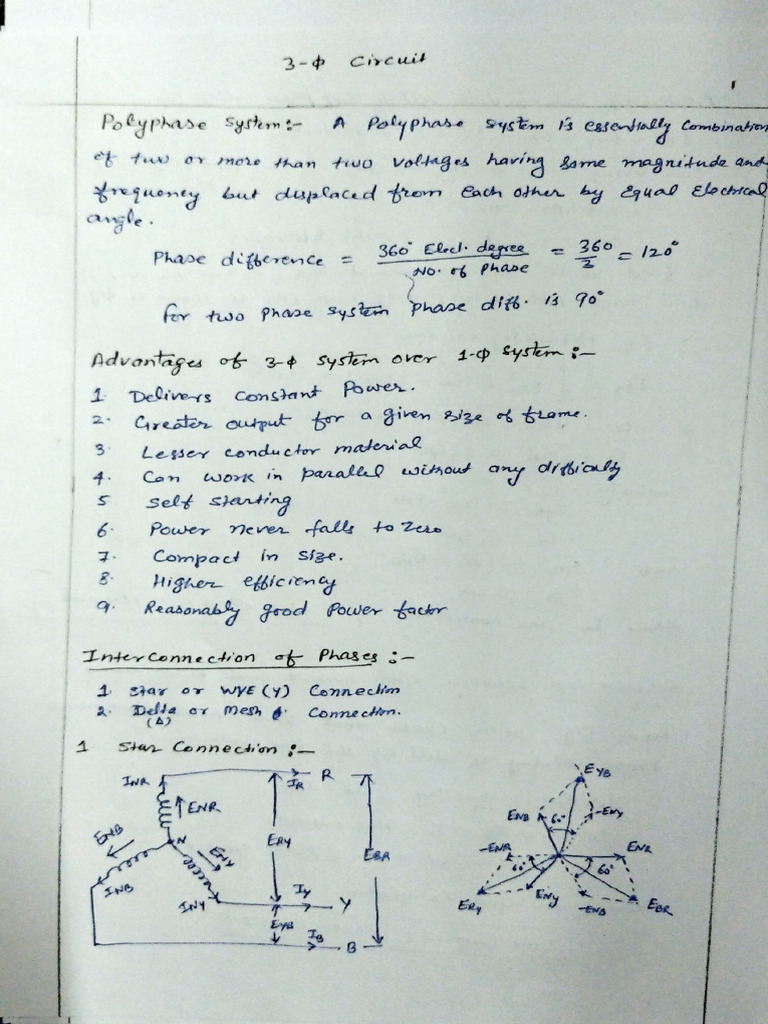 3-φ Circuit
1
Polyphase System:- A Polyphase System is essentially Combination
of two or more than two voltages having same magnitude and
frequency but displaced from Each other by Equal Electrical
angle.
Phase difference = 360° Elect. degree / No. of Phase = 360/3 = 120°
For two Phase System Phase diff. is 90°
Advantages of 3-φ System over 1-φ System :-
1. Delivers Constant Power.
2. Greater output for a given size of frame.
3. Lesser conductor material
4. Can work in parallel without any difficulty
5 Self starting
6. Power never falls to zero
7. Compact in size.
8. Higher efficiency
9. Reasonably good Power factor
Interconnection of Phases :-
1. Star or WYE (Y) Connection
2. Delta or Mesh Connection.
(Δ)
1 Star Connection :-
INR
IR
R
ENR
ENB
N
ENY
ERY
EBR
INB
INY
IY
Y
EYB
IB
B
EYB
ENB
60°
-ENY
-ENR
ENR
60°
60°
ERY
ENY
-ENB
EBR